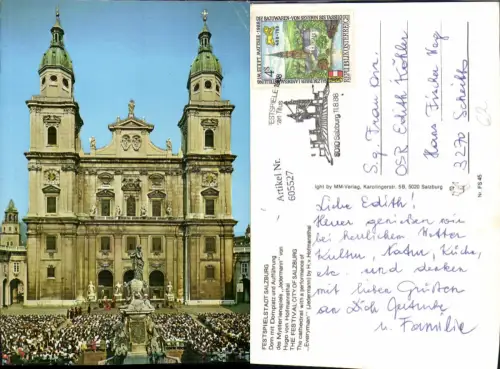 Liebe Edith!
Heuer genießen wir
bei herrlichem Wetter
Kultur, Natur, Küche,
etc. und denken
mit lieben Grüßen
an Dich Gertrude
u. Familie
S.g. Frau
OSR Edith Köhler
Hans Fischer Weg
3270 Scheibbs
62
REPUBLIK ÖSTERREICH
5010 Salzburg 11.8.86
Artikel Nr.
605527
ight by MM-Verlag, Karolingerstr. 5B, 5020 Salzburg
Nr. FS 45
FESTSPIELSTADT SALZBURG
Dom mit Domplatz mit Aufführung
des Mysterienspiels „Jedermann" von
Hugo von Hofmannsthal
THE FESTIVAL CITY OF SALZBURG
The cathedral with a performance of
„Everyman" (Jedermann) by H. v. Hofmannsthal